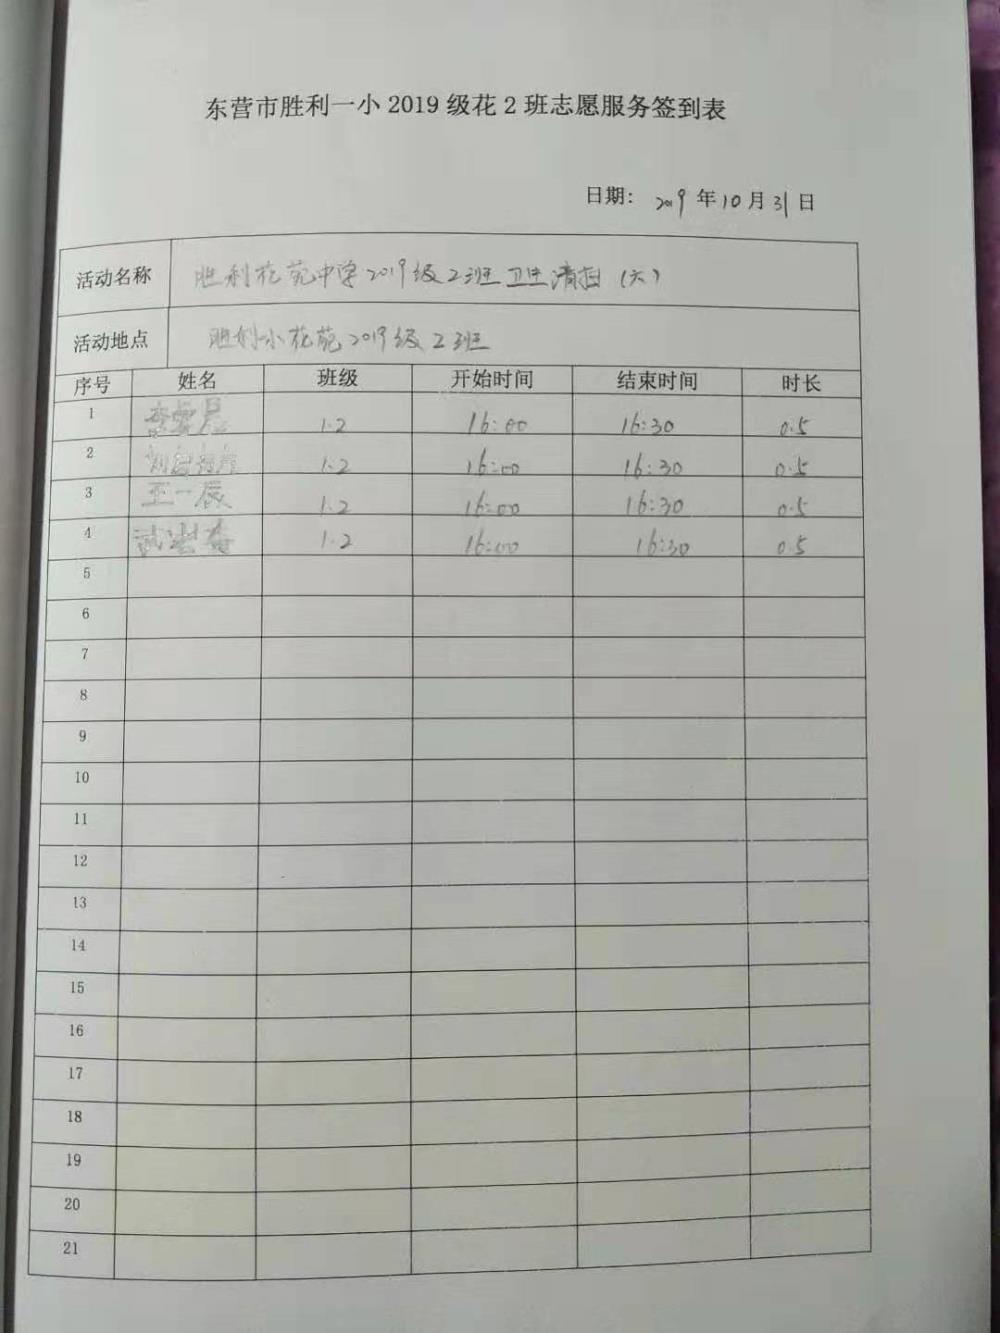 东营市胜利一小2019级花2班志愿服务签到表
日期: 2019年10月31日
活动名称 胜利花苑中学2019级2班卫生清扫(大)
活动地点 胜利小花苑2019级2班
序号 姓名 班级 开始时间 结束时间 时长
1 1.2 16:00 16:30 0.5
2 1.2 16:00 16:30 0.5
3 王一辰 1.2 16:00 16:30 0.5
4 1.2 16:00 16:30 0.5
5
6
7
8
9
10
11
12
13
14
15
16
17
18
19
20
21